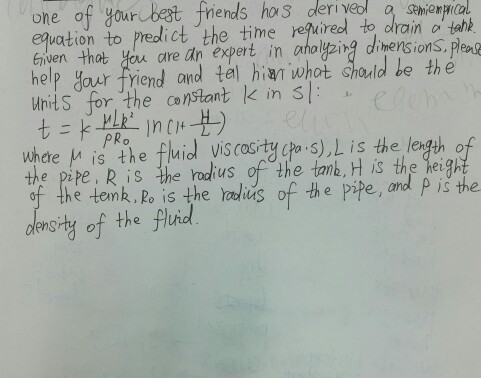 one of your best friends has derived a semiempirical
equation to predict the time required to drain a tank.
Given that you are an expert in analyzing dimensions, please
help your friend and tell him what should be the
units for the constant k in SI:
t = k μLR²/ρR₀ ln(1+ H/L)
where μ is the fluid viscosity (pa·s), L is the length of
the pipe, R is the radius of the tank, H is the height
of the tank, R₀ is the radius of the pipe, and ρ is the
density of the fluid.